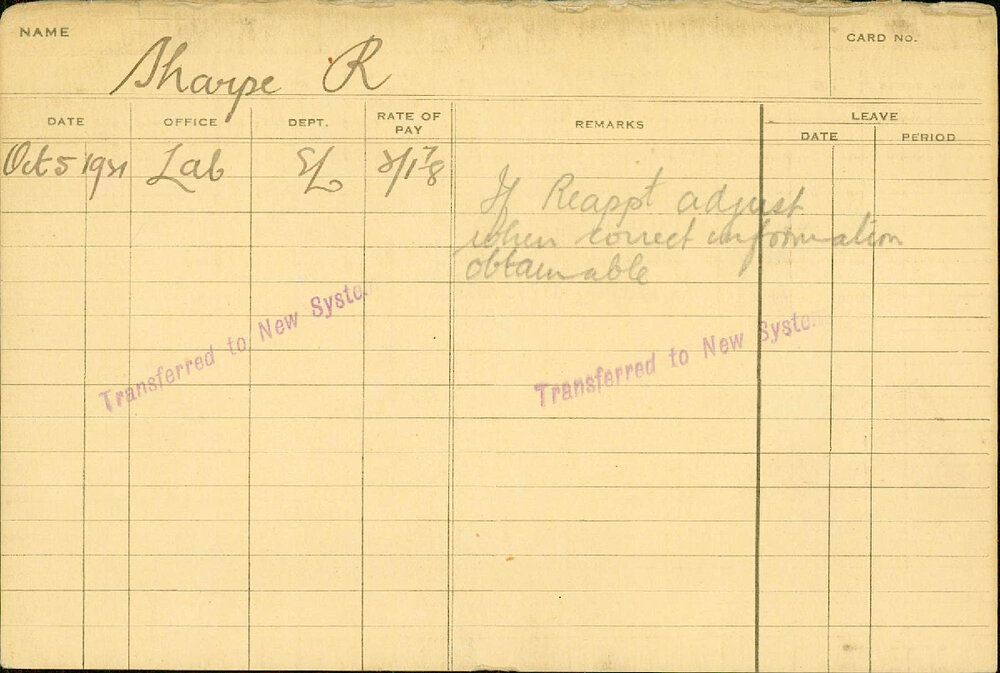 NAME Sharpe R CARD NO.
LEAVE
DATE OFFICE DEPT. RATE OF PAY REMARKS DATE PERIOD
Oct 5 1921 Lab EL
If Reappt adjust
when correct information
obtainable
Transferred to New Syste
Transferred to New Syste